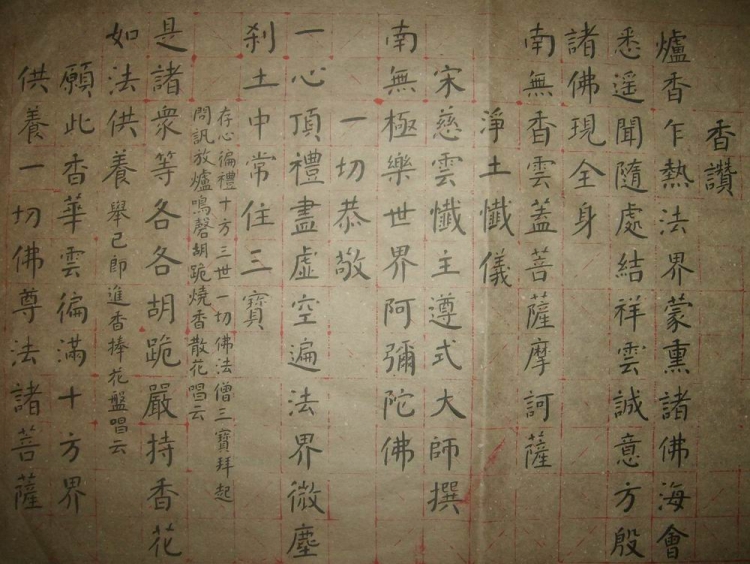 香讚
爐香乍熱法界蒙熏諸佛海會
悉遥聞隨處結祥雲誠意方殷
諸佛現全身
南無香雲蓋菩薩摩訶薩
淨土懺儀
宋慈雲懺主遵式大師撰
南無極樂世界阿彌陀佛
一切恭敬
一心頂禮盡虛空遍法界微塵
刹土中常住三寶
存心徧禮十方三世一切佛法僧三寶拜起
問訊放爐鳴磬胡跪燒香散花唱云
是諸衆等各各胡跪嚴持香花
如法供養舉已即進香捧花盤唱云
願此香華雲徧滿十方界
供養一切佛尊法諸菩薩